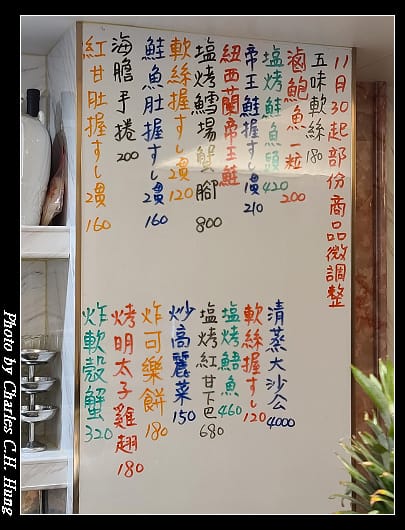 11月30起部份商品微調整
五味軟絲180
滷鮑魚一粒200
塩烤鮭魚頭420
帝王鮭握すし1貫210
紐西蘭帝王鮭
塩烤鱈場蟹腳800
軟絲握すし2貫120
鮭魚肚握すし2貫160
海膽手捲200
紅甘肚握すし2貫160
清蒸大沙公4000
軟絲握すし120
塩烤鯃魚460
塩烤紅甘下巴680
炒高麗菜150
炸可樂餅180
烤明太子雞翅180
炸軟殼蟹320
Photo by Charles C.H. Hung